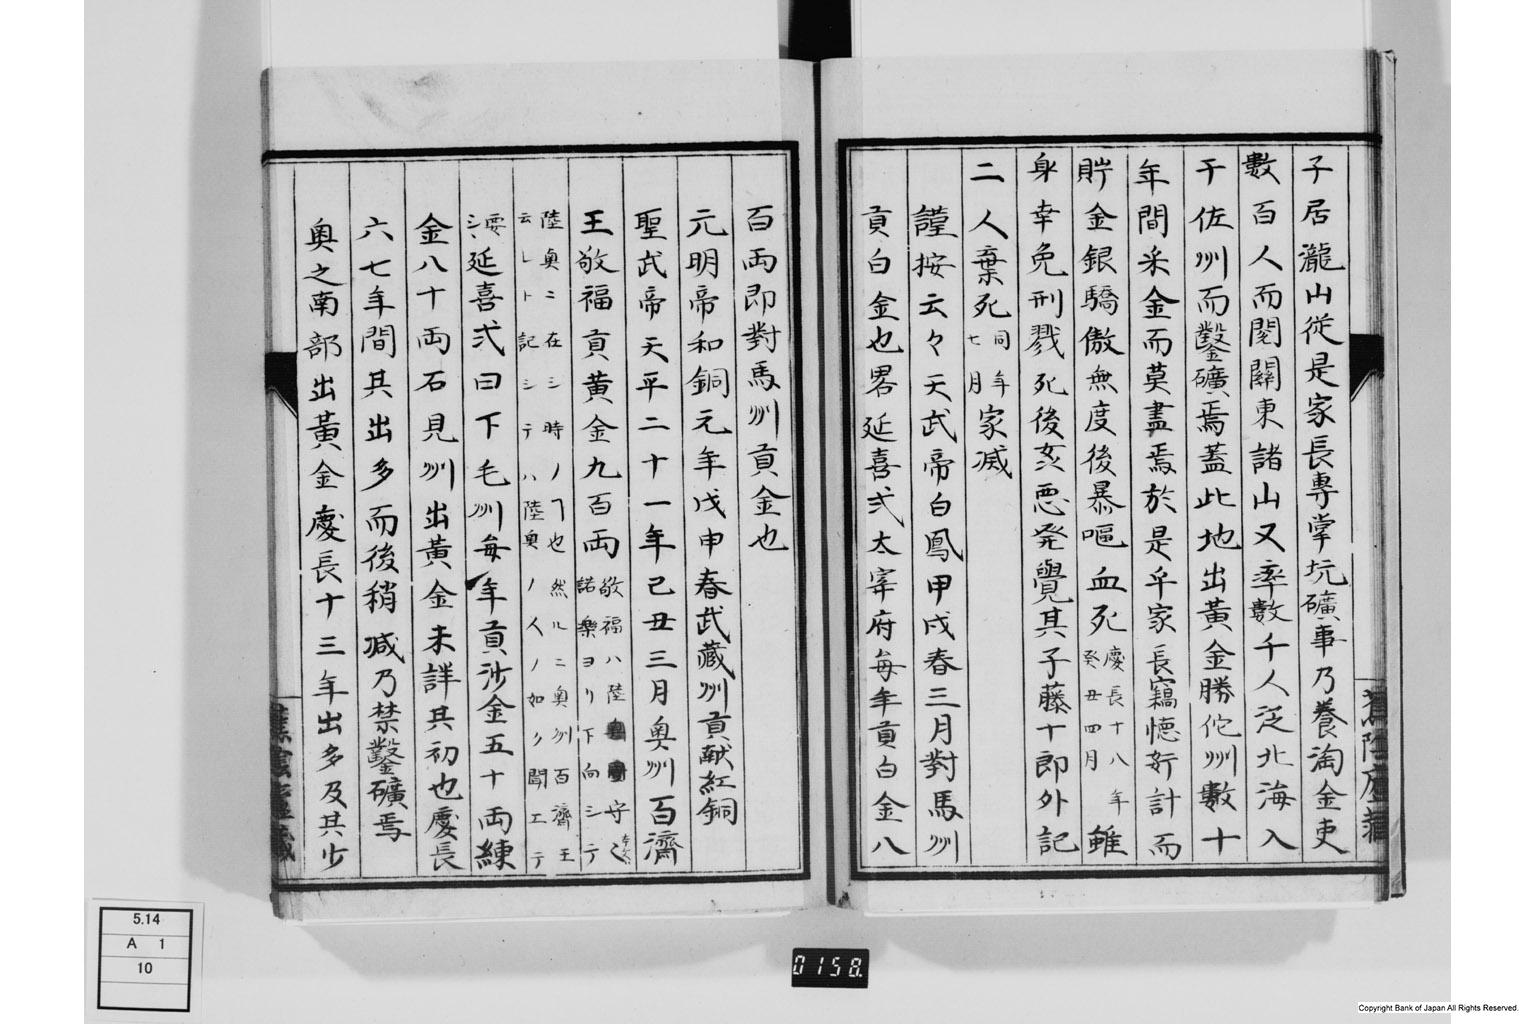 子居瀧山従是家長專掌坑礦事乃養淘金吏
數百人而閔關東諸山又率數千人泛北海入
于佐州而鑿礦焉蓋此地出黃金勝佗州數十
年間采金而莫盡焉於是乎家長竊懐姧計而
貯金銀驕傲無度後暴嘔血死慶長十八年癸丑四月雖
身幸免刑戮死後亥悪発覺其子藤十郎外記
二人棄死同年七月家滅
謹按云々天武帝白鳳甲戌春三月對馬州
貢白金也畧延喜式太宰府每年貢白金八
百両即對馬州貢金也
元明帝和銅元年戊申春武藏州貢献紅銅
聖武帝天平二十一年己丑三月奥州百濟
王敬福貢黃金九百両敬福ハ陸守諾樂ヨリ下向シテ
陸奥ニ在シ時ノヿ也然ルニ奥州百濟王
云レト記シテハ陸奥ノ人ノ如ク聞エテ
延喜式曰下毛州每年貢沙金五十両練
金八十両石見州出黃金未詳其初也慶長
六七年間其出多而後稍減乃禁鑿礦焉
奥之南部出黃金慶長十三年出多及其少
5.14
A 1
10
0158.
Copyright Bank of Japan All Rights Reserved.